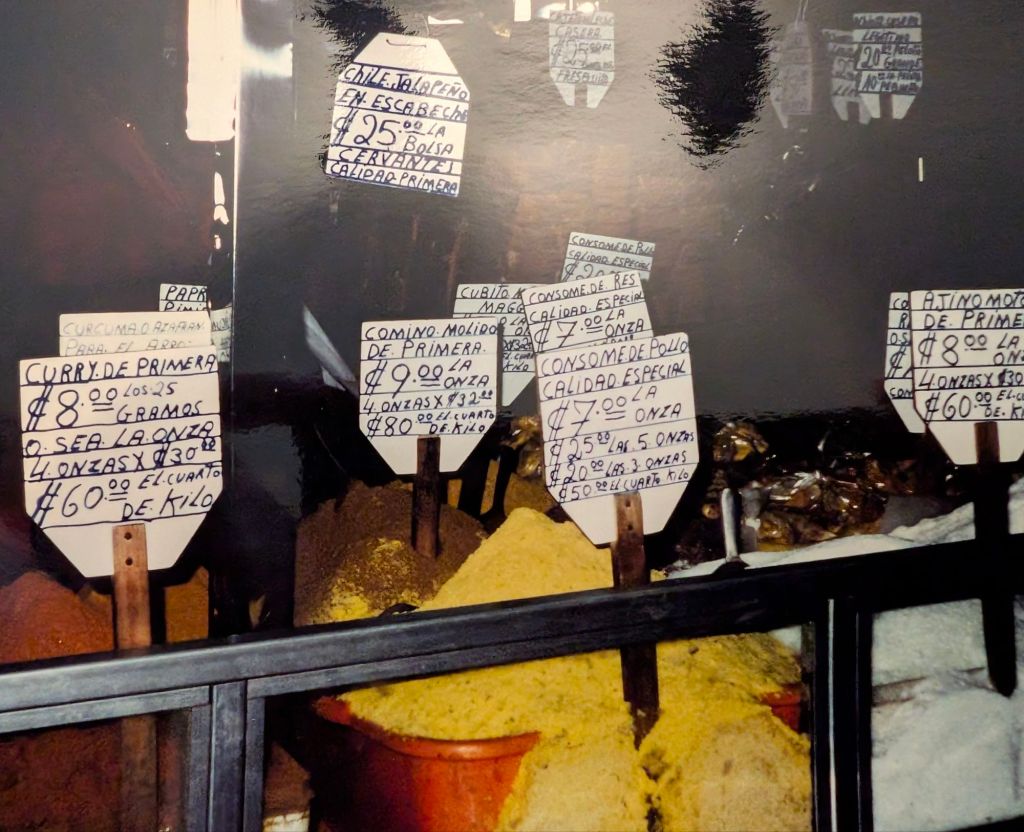 CHILE JALAPEÑO
EN ESCABECHE
₡25.00 LA
BOLSA
CERVANTES
CALIDAD PRIMERA
CASERA
₡25
FRESQUITO
20
GRAMOS
PAPR
CURCUMA O AZAFRAN
PARA EL ARRO
CURRY DE PRIMERA
₡8.00 LOS 25
GRAMOS
O SEA LA ONZA
4 ONZAS X ₡30.00
₡60.00 EL CUARTO
DE KILO
COMINO MOLIDO
DE PRIMERA
₡9.00 LA
ONZA
4 ONZAS X ₡32.00
₡80.00 EL CUARTO
DE KILO
CUBITO
MAGG
CONSOME DE POLL
CALIDAD ESPECIAL
₡20
CONSOME DE RES
CALIDAD ESPECIAL
₡7.00 LA
ONZA
CONSOME DE POLLO
CALIDAD ESPECIAL
₡7.00 LA
ONZA
₡25.00 LAS 5 ONZAS
₡20.00 LAS 3 ONZAS
₡50.00 EL CUARTO KILO
AJINOMOTO
DE PRIME
₡8.00 LA
ONZ
4 ONZAS X ₡30
₡60.00 EL CUAR
DE K